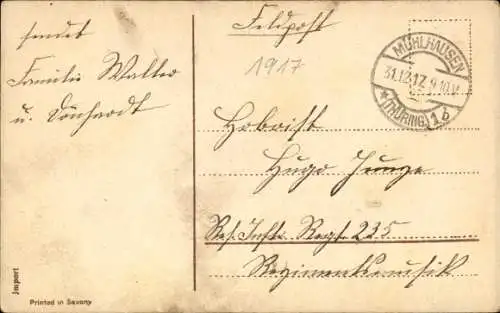 sendet
Familie Walter
u. Dönhardt
Feldpost
1917
MÜHLHAUSEN
31.12.17. 9-10.V.
* (THÜRING.) 1 b
Hoboist
Hugo Junge
Res. Inft. Regt. 235
Regimentsmusik
Import
Printed in Saxony